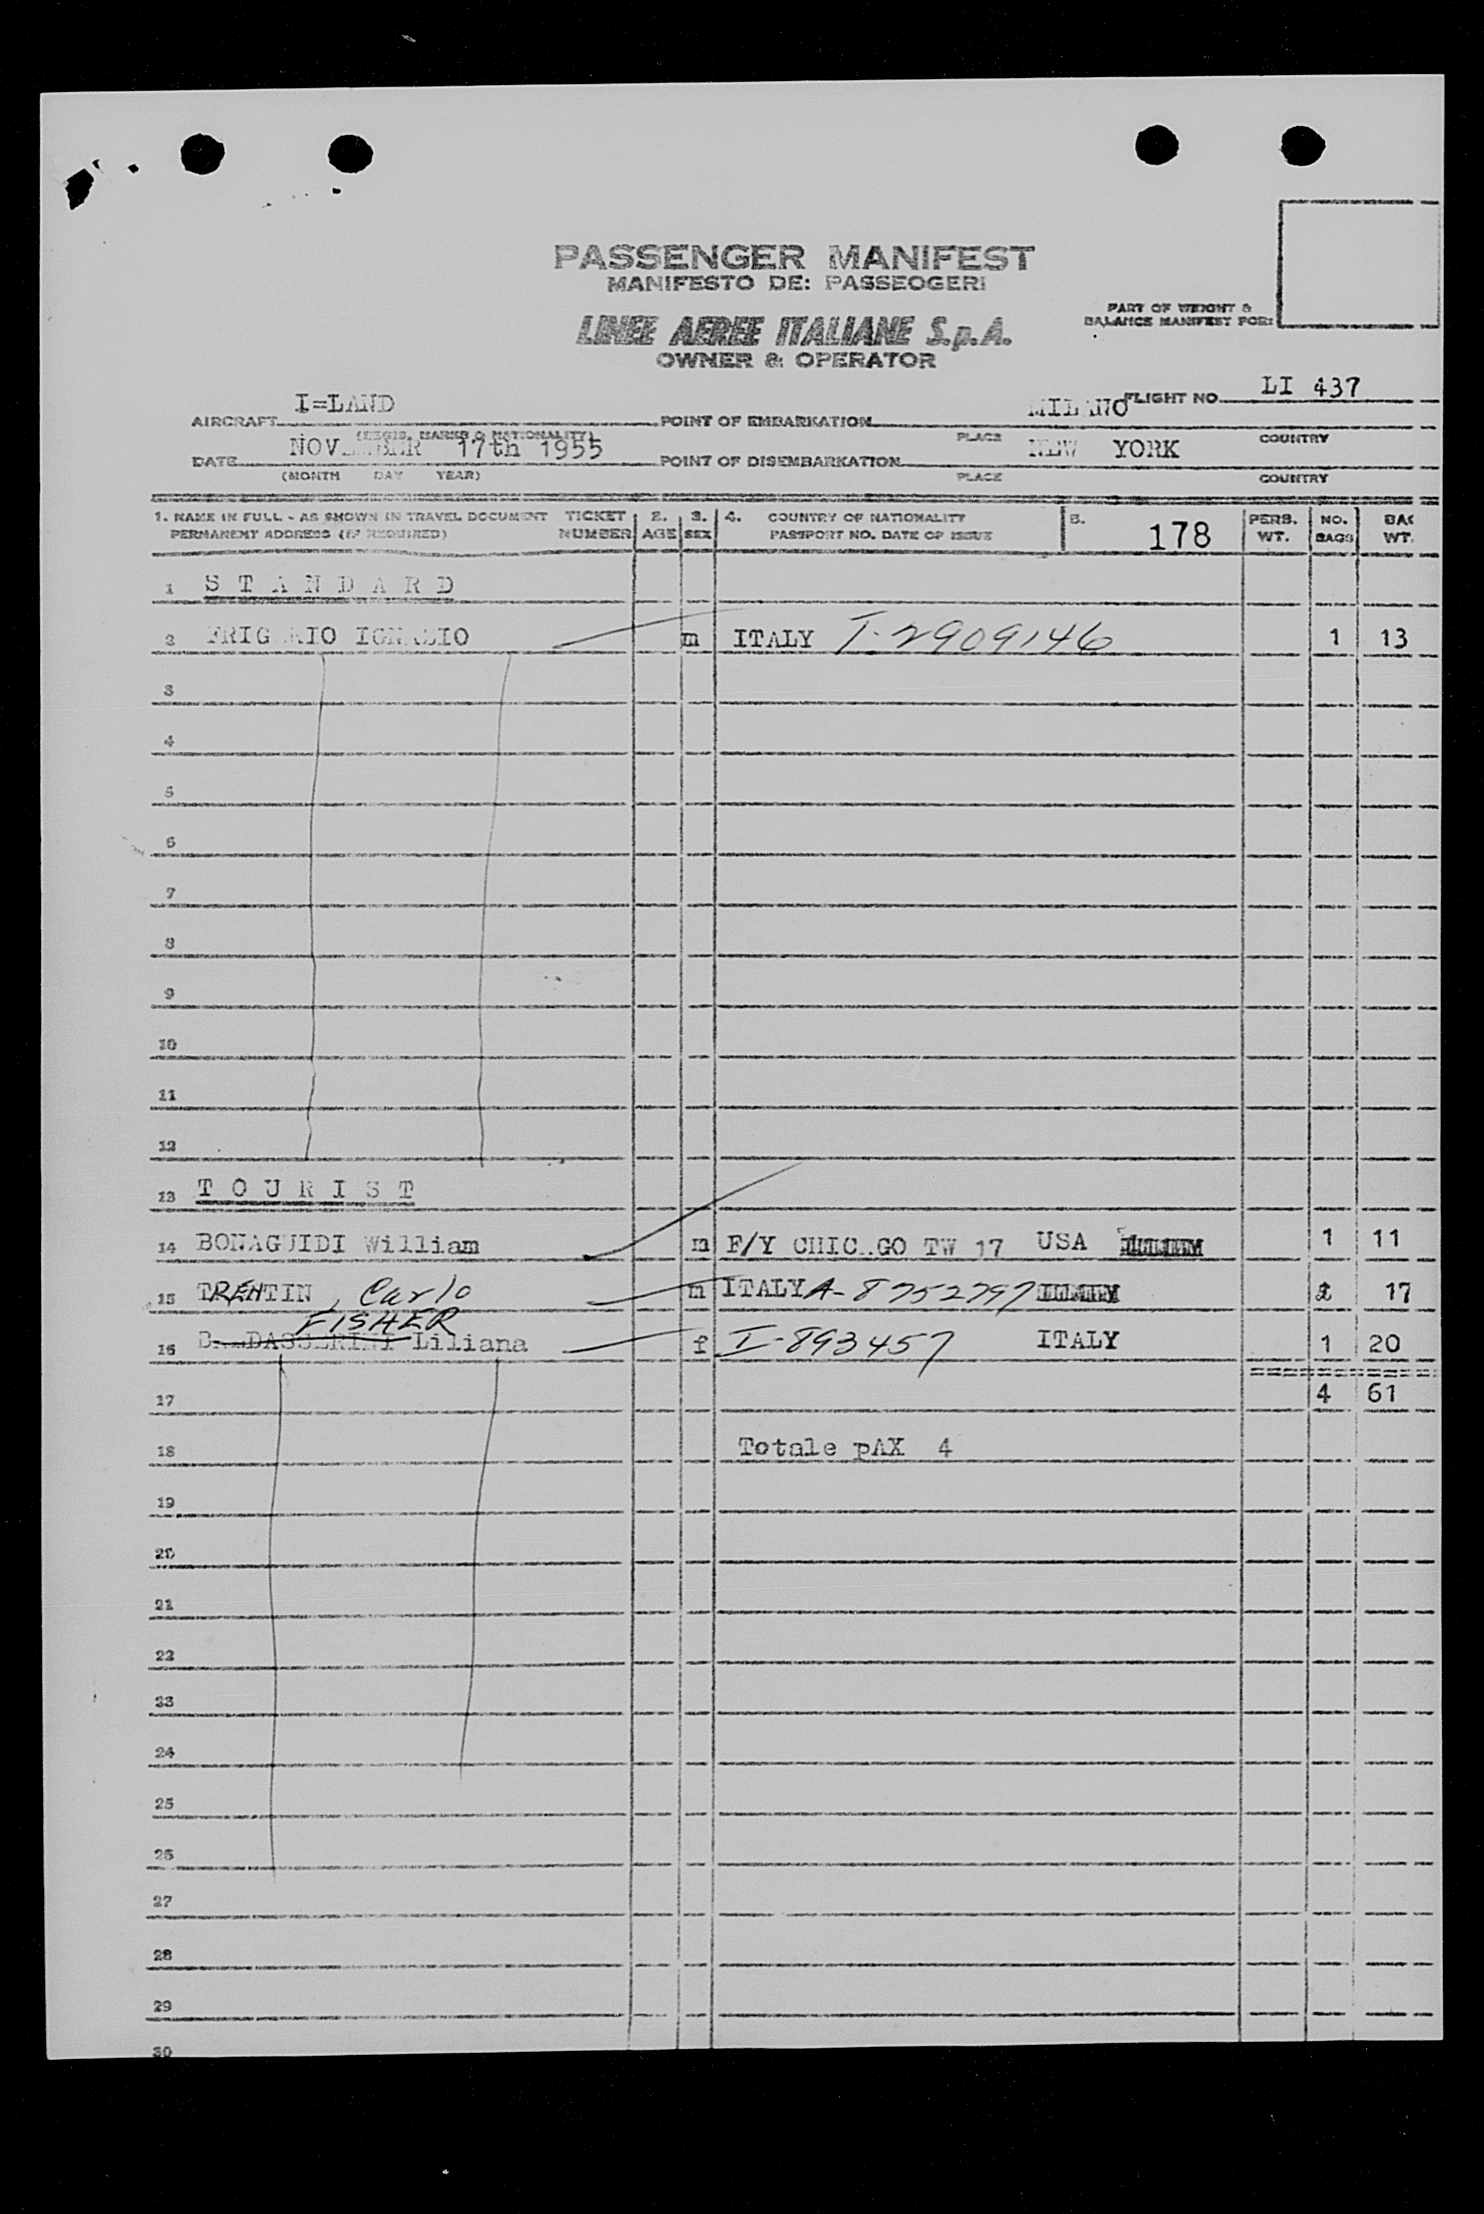 PASSENGER MANIFEST
MANIFESTO DEI PASSEOGERI
LINEE AEREE ITALIANE S.p.A.
OWNER & OPERATOR
PART OF WEIGHT &
BALANCE MANIFEST FOR:
AIRCRAFT I=LAND
(REGIS. MARKS & NATIONALITY)
POINT OF EMBARKATION MILANO
PLACE COUNTRY
FLIGHT NO. LI 437
DATE NOVEMBER 17th 1955
(MONTH DAY YEAR)
POINT OF DISEMBARKATION NEW YORK
PLACE COUNTRY
1. NAME IN FULL - AS SHOWN IN TRAVEL DOCUMENT TICKET 2. 3. 4. COUNTRY OF NATIONALITY 5. 178 PERS. NO. BAG
PERMANENT ADDRESS (IF REQUIRED) NUMBER AGE SEX PASSPORT NO. DATE OF ISSUE WT. BAGS WT.
1 S T A N D A R D
2 FRIGERIO IGNAZIO m ITALY I-2909146 1 13
3
4
5
6
7
8
9
10
11
12
13 T O U R I S T
14 BONAGUIDI William m F/Y CHICAGO TW 17 USA 1 11
15 TRENTIN, Carlo m ITALY A-8752797 17
FISHER
16 Liliana f I-893457 ITALY 1 20
17 4 61
18 Totale pAX 4
19
20
21
22
23
24
25
26
27
28
29
30